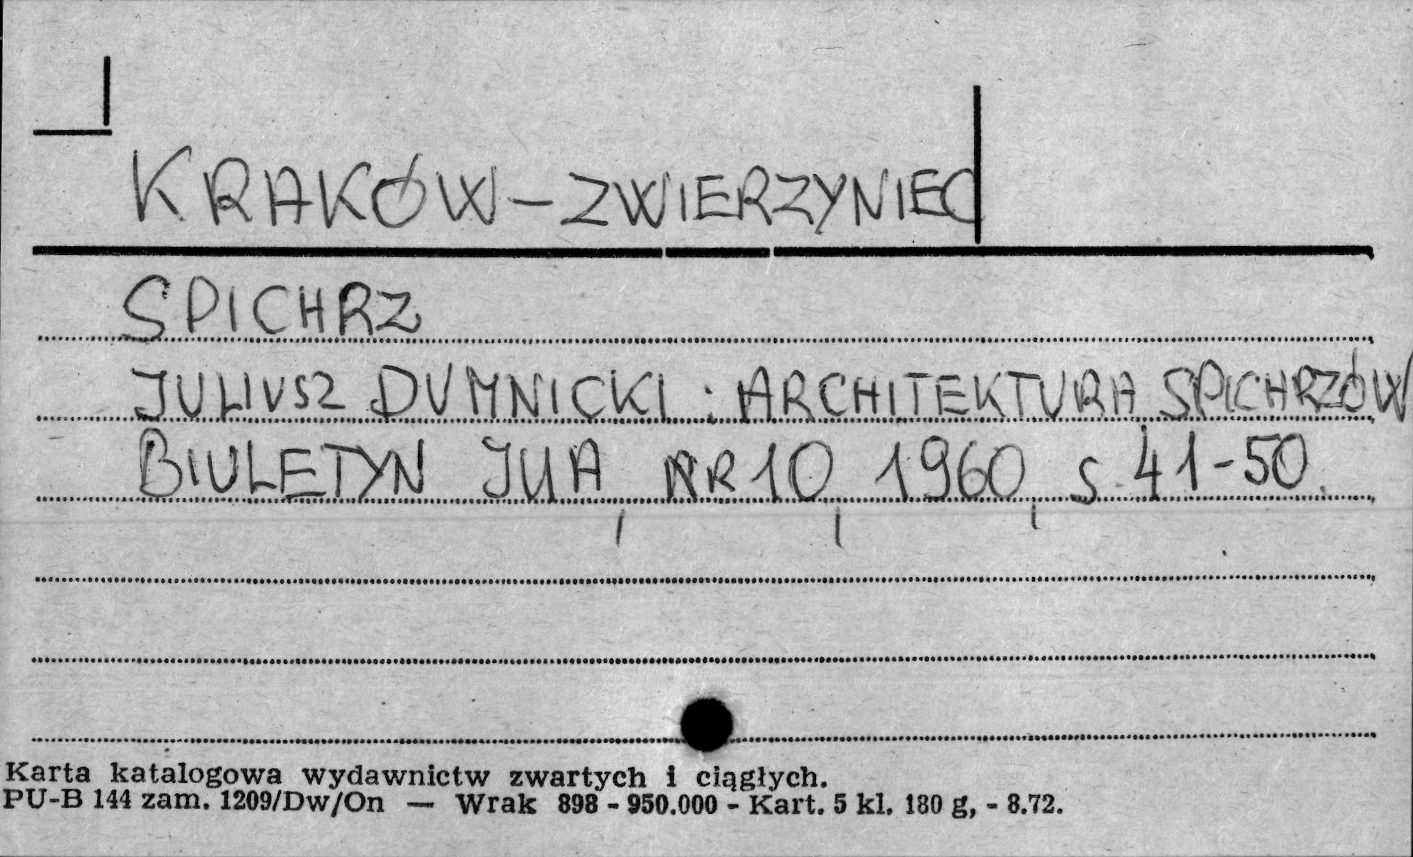 KRAKÓW-ZWIERZYNIEC
SPICHRZ
JULIUSZ DUMNICKI: ARCHITEKTURA SPICHRZÓW
BIULETYN JUA, NR 10, 1960, s. 41-50.
Karta katalogowa wydawnictw zwartych i ciągłych.
PU-B 144 zam. 1209/Dw/On — Wrak 898 - 950.000 - Kart. 5 kl. 180 g, - 8.72.